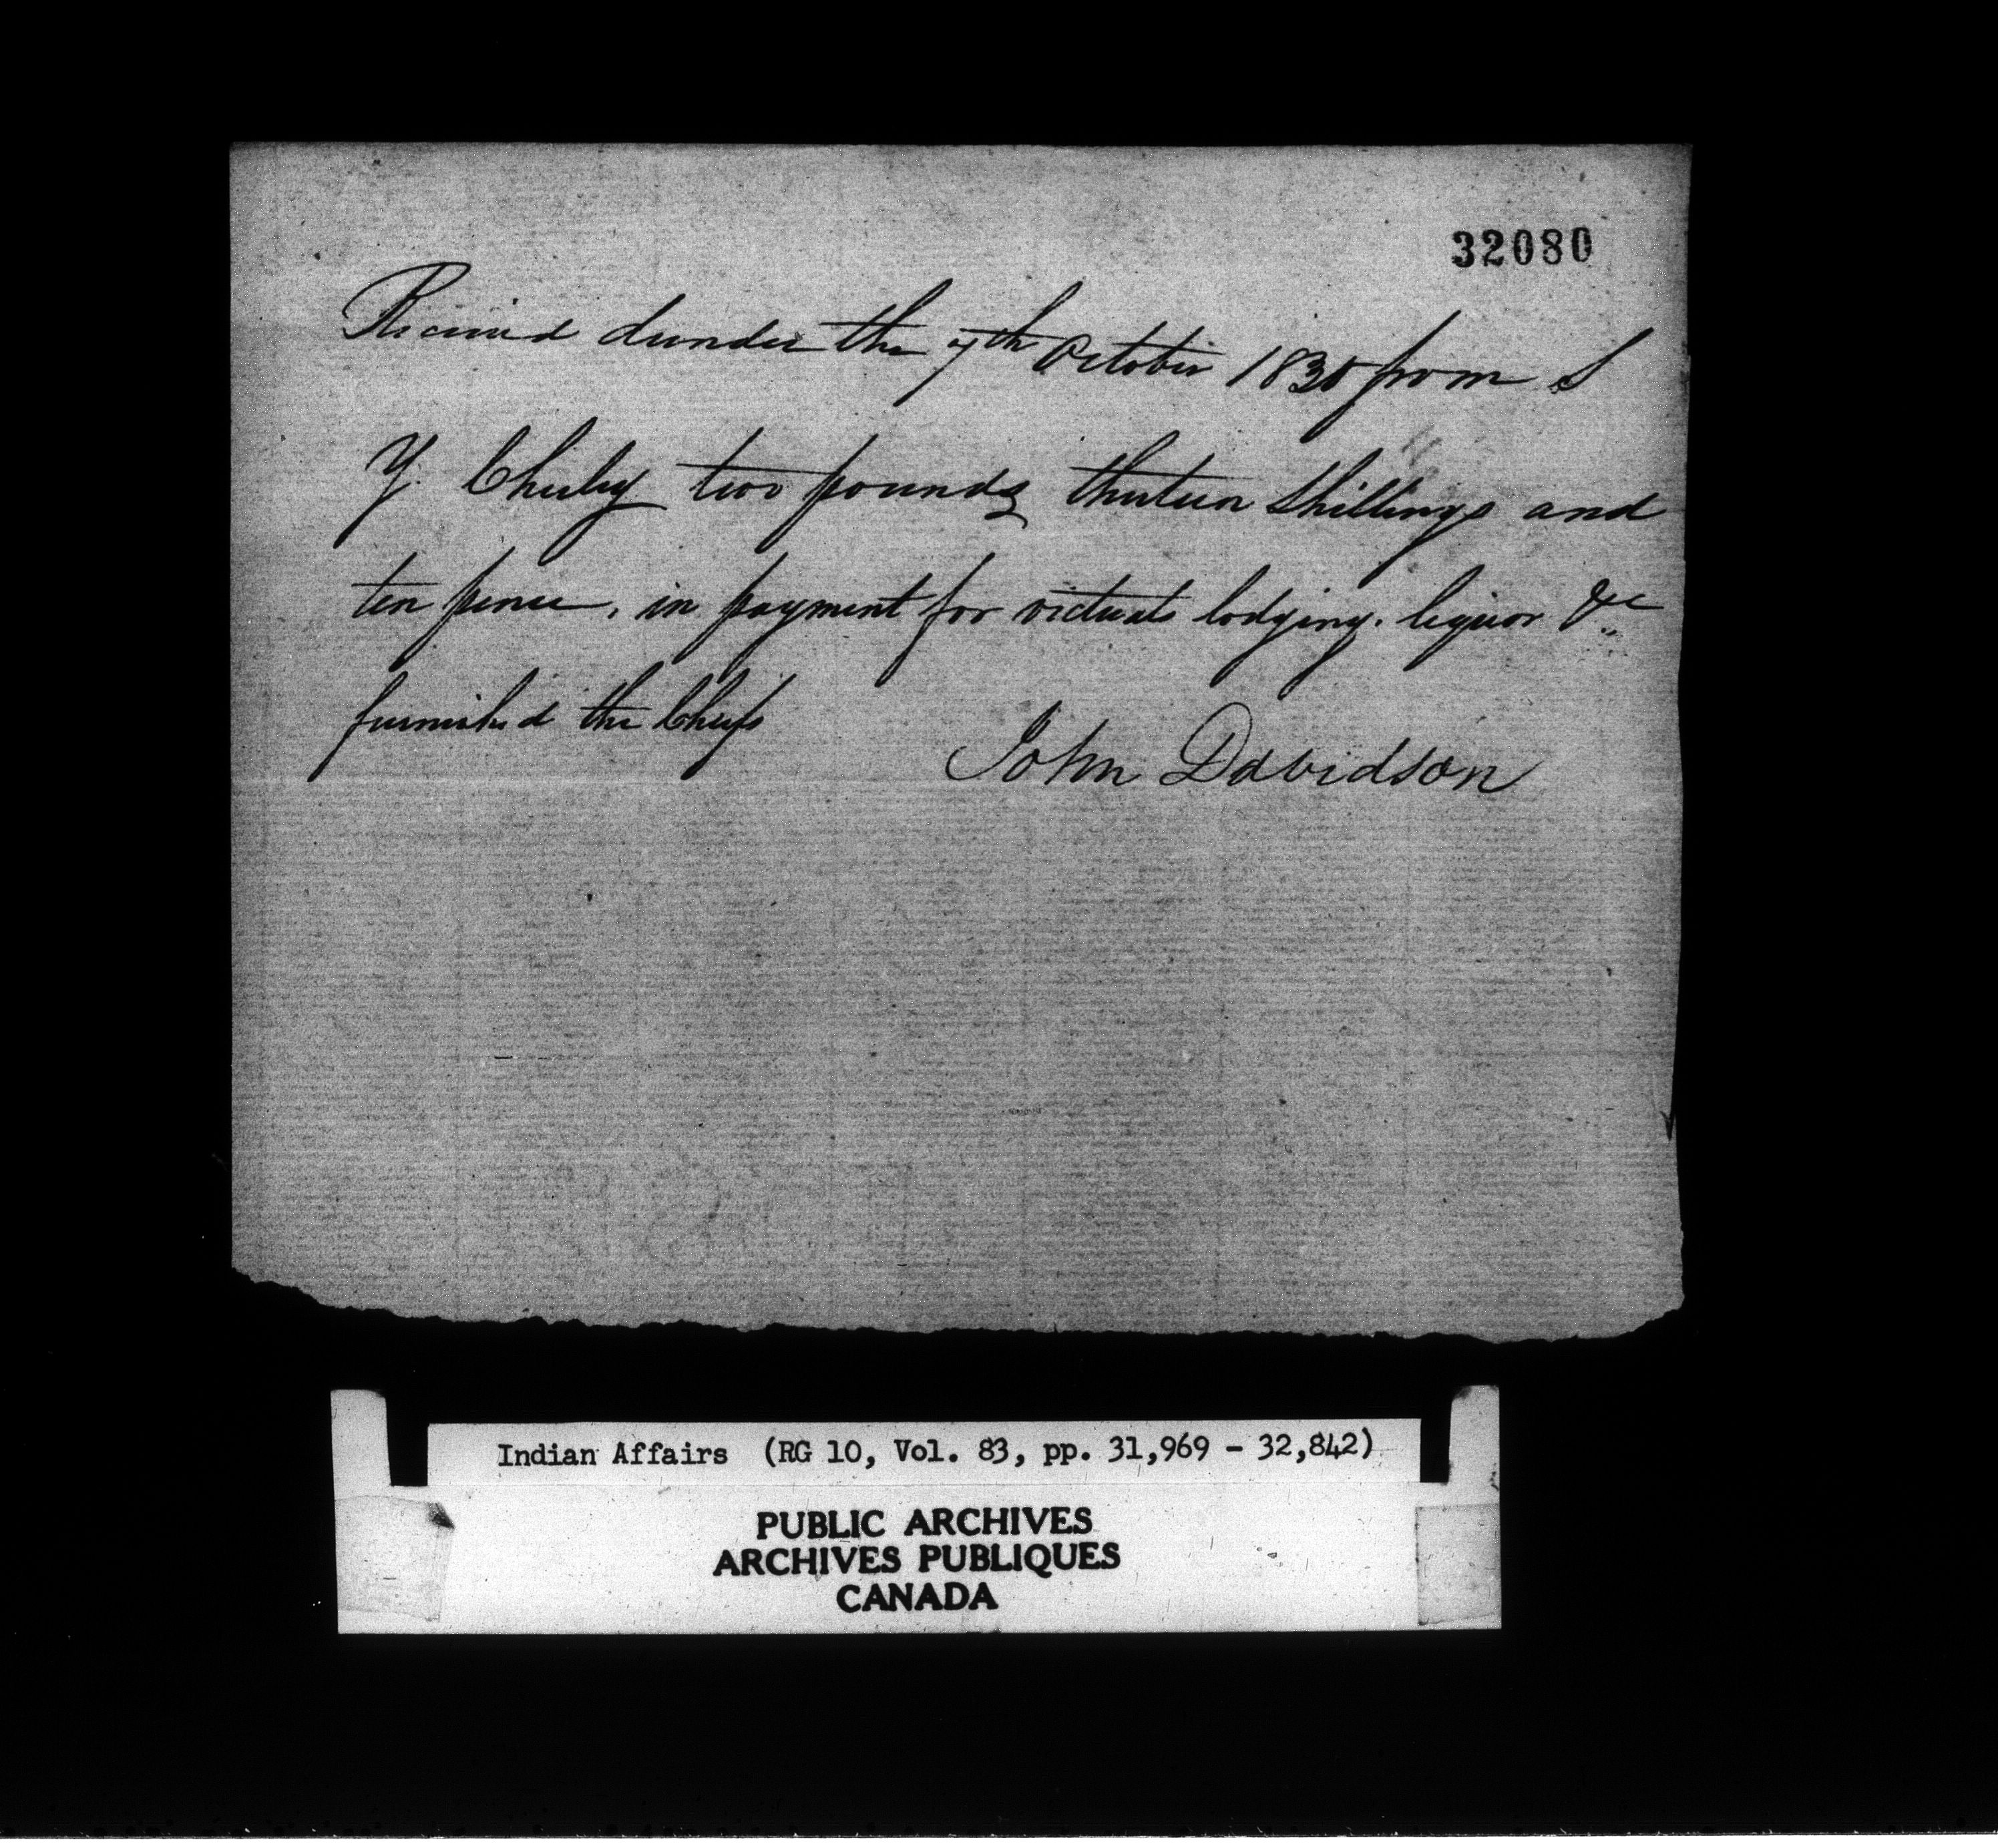 32080
Received dundee the 7th October 1830 from S
Y. Chesley two pounds thirteen shillings and
ten pence, in payment for victuals lodging. liquor &c
furnished the Chiefs
John Davidson
Indian Affairs (RG 10, Vol. 83, pp. 31,969 - 32,842)
PUBLIC ARCHIVES
ARCHIVES PUBLIQUES
CANADA